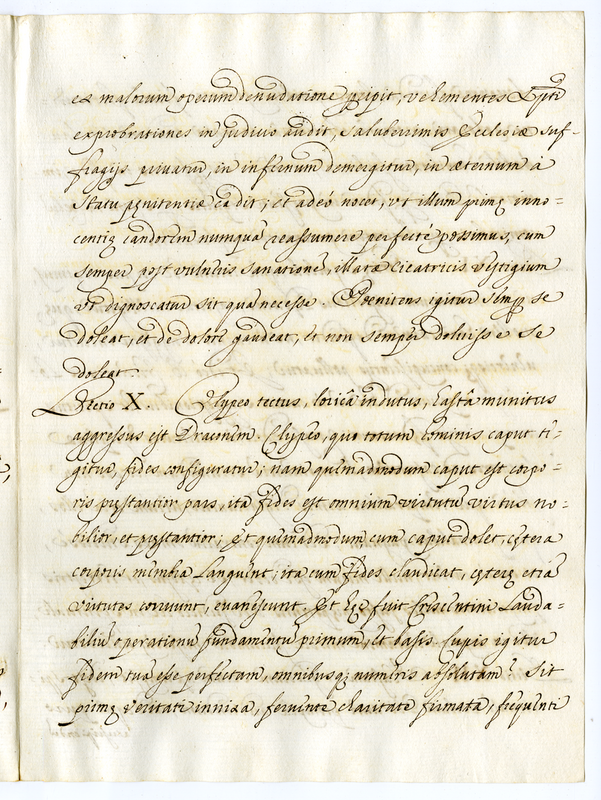 ex malorum operum denudatione p̱cipit, vehementes Xp̄ti
exprobrationes in judicio audit, saluberrimis Ecclesiæ suf-
fragijs privatur, in infernum demergitur, in æternum à
statu pęnitentiæ cadit; et adeò nocet, vt illum primę inno=
centię candorem numquā reassumere perfectè possimus, cum
semper post vulneris sanationē, illatæ cicatricis vestigium
vt dignoscatur sit quā necesse. Poenitens igitur semp̱ se
doleat, et de dolore gaudeat, et non semper doluisse se
doleat.
Lectio X. Clypeo tectus, loricâ indutus, hastâ munitus
aggressus est Draconem. Clypeo, quo totum hominis caput te=
gitur, fides configuratur; nam quemadmodum caput est corpo=
ris pręstantior pars, ita fides est omnium virtutū virtus no=
bilior, et pręstantior; et quemadmodum cum caput dolet, cętera
corporis membra languent; ita cum fides claudicat, cęterę etiā
virtutes corruunt, evanescunt. Et hęc fuit Crescentini lauda=
biliū operationū fundamentū primum, et basis. Cupis igitur
fidem tuā esse perfectam, omnibusq; numeris absolutam? Sit
primę veritati innixa, fervente charitate firmata, frequenti